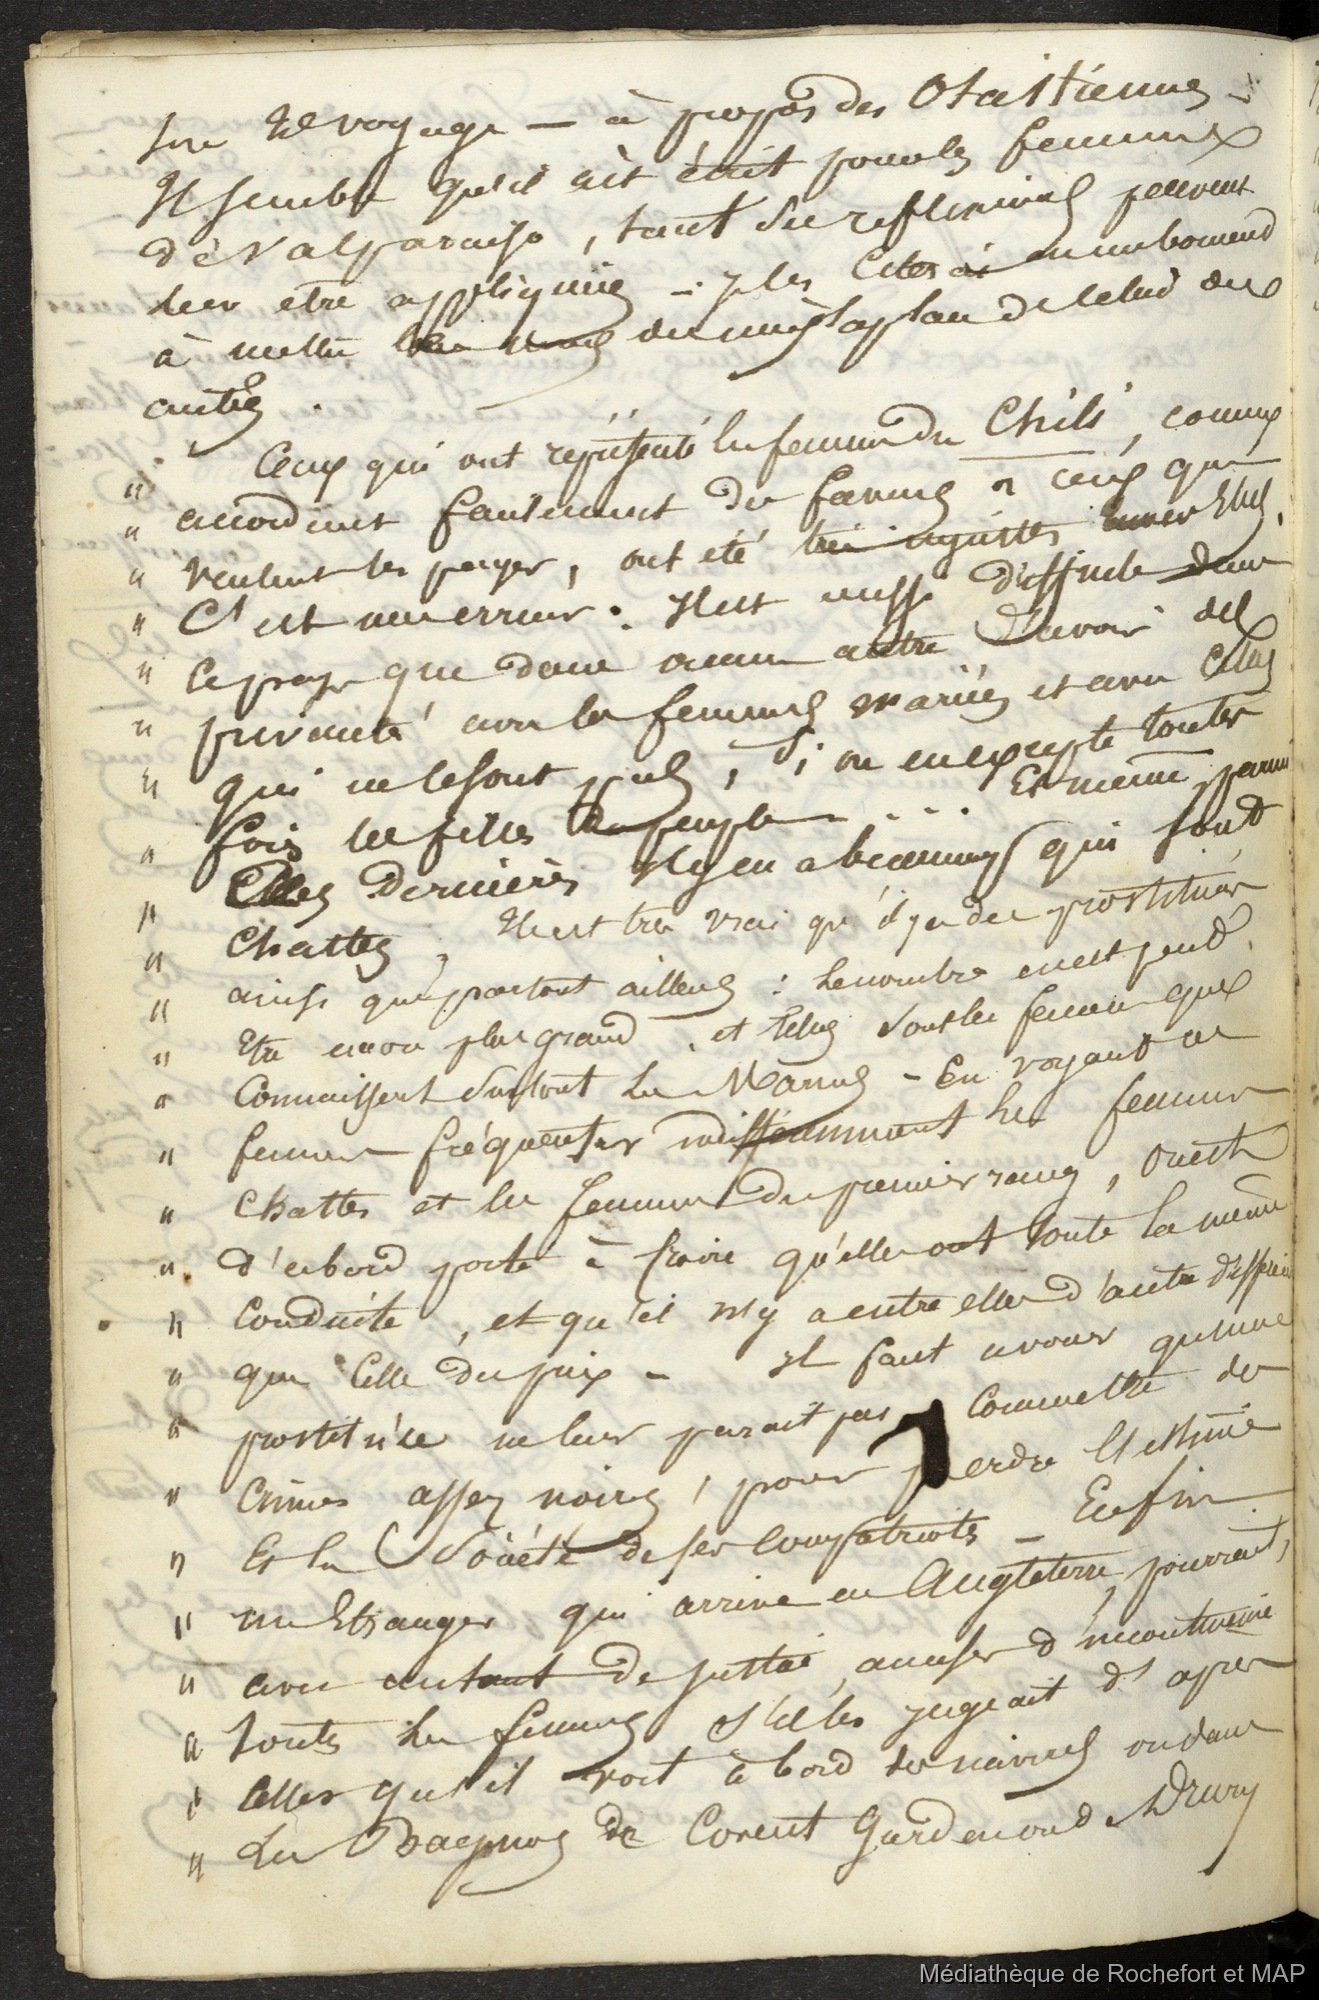 son 2e voyage — à propos des Otaïtiennes —
Il semble qu'il ait écrit pour les femmes
de Valparaiso, tant ses reflexions peuvent
leur etre appliquées — Je les cite en me bornant
à mettre les unes à la place de celui des
autres.
" Ceux qui ont représenté les femmes du Chili, comme
" accordant facilement des faveurs à ceux qui
" veulent les payer, ont été très injustes envers elles.
" C'est une erreur : Il est aussi difficile dans
" ce pays que dans aucun autre d'avoir des
" privautés avec les femmes mariées et avec celles
" qui ne le sont pas, si on en excepte toutes
" fois les filles du peuple .... Et même parmi
" Elles dernières Il y en a beaucoup qui sont
" Chastes. Il est très vrai qu'il y a des prostituées
" ainsi que partout ailleurs : le nombre en est peut
" Etre encore plus grand, et telles sont les femmes que
" Connaissent surtout les Marins — En voyant ces
" femmes fréquenter indifféremment les femmes
" Chastes et les femmes du premier rang, on est
" d'abord porté à croire qu'elles ont toute la même
" conduite, et qu'il n'y a entre elles d'autre différence
" que celle du prix — Il faut avouer qu'une
" prostituée ne leur parait pas commettre des
" crimes assez noirs, pour perdre l'estime
" Et la Société de ses compatriotes — Enfin
" un Etranger qui arrive en Angleterre, pourrait,
" avec autant de justice, accuser d'incontinence
" toutes les femmes s'il les jugeait d'après
" celles qu'il voit à bord des navires ou dans
" Les Bagnos de Covent Garden ou de Drury
Médiathèque de Rochefort et MAP